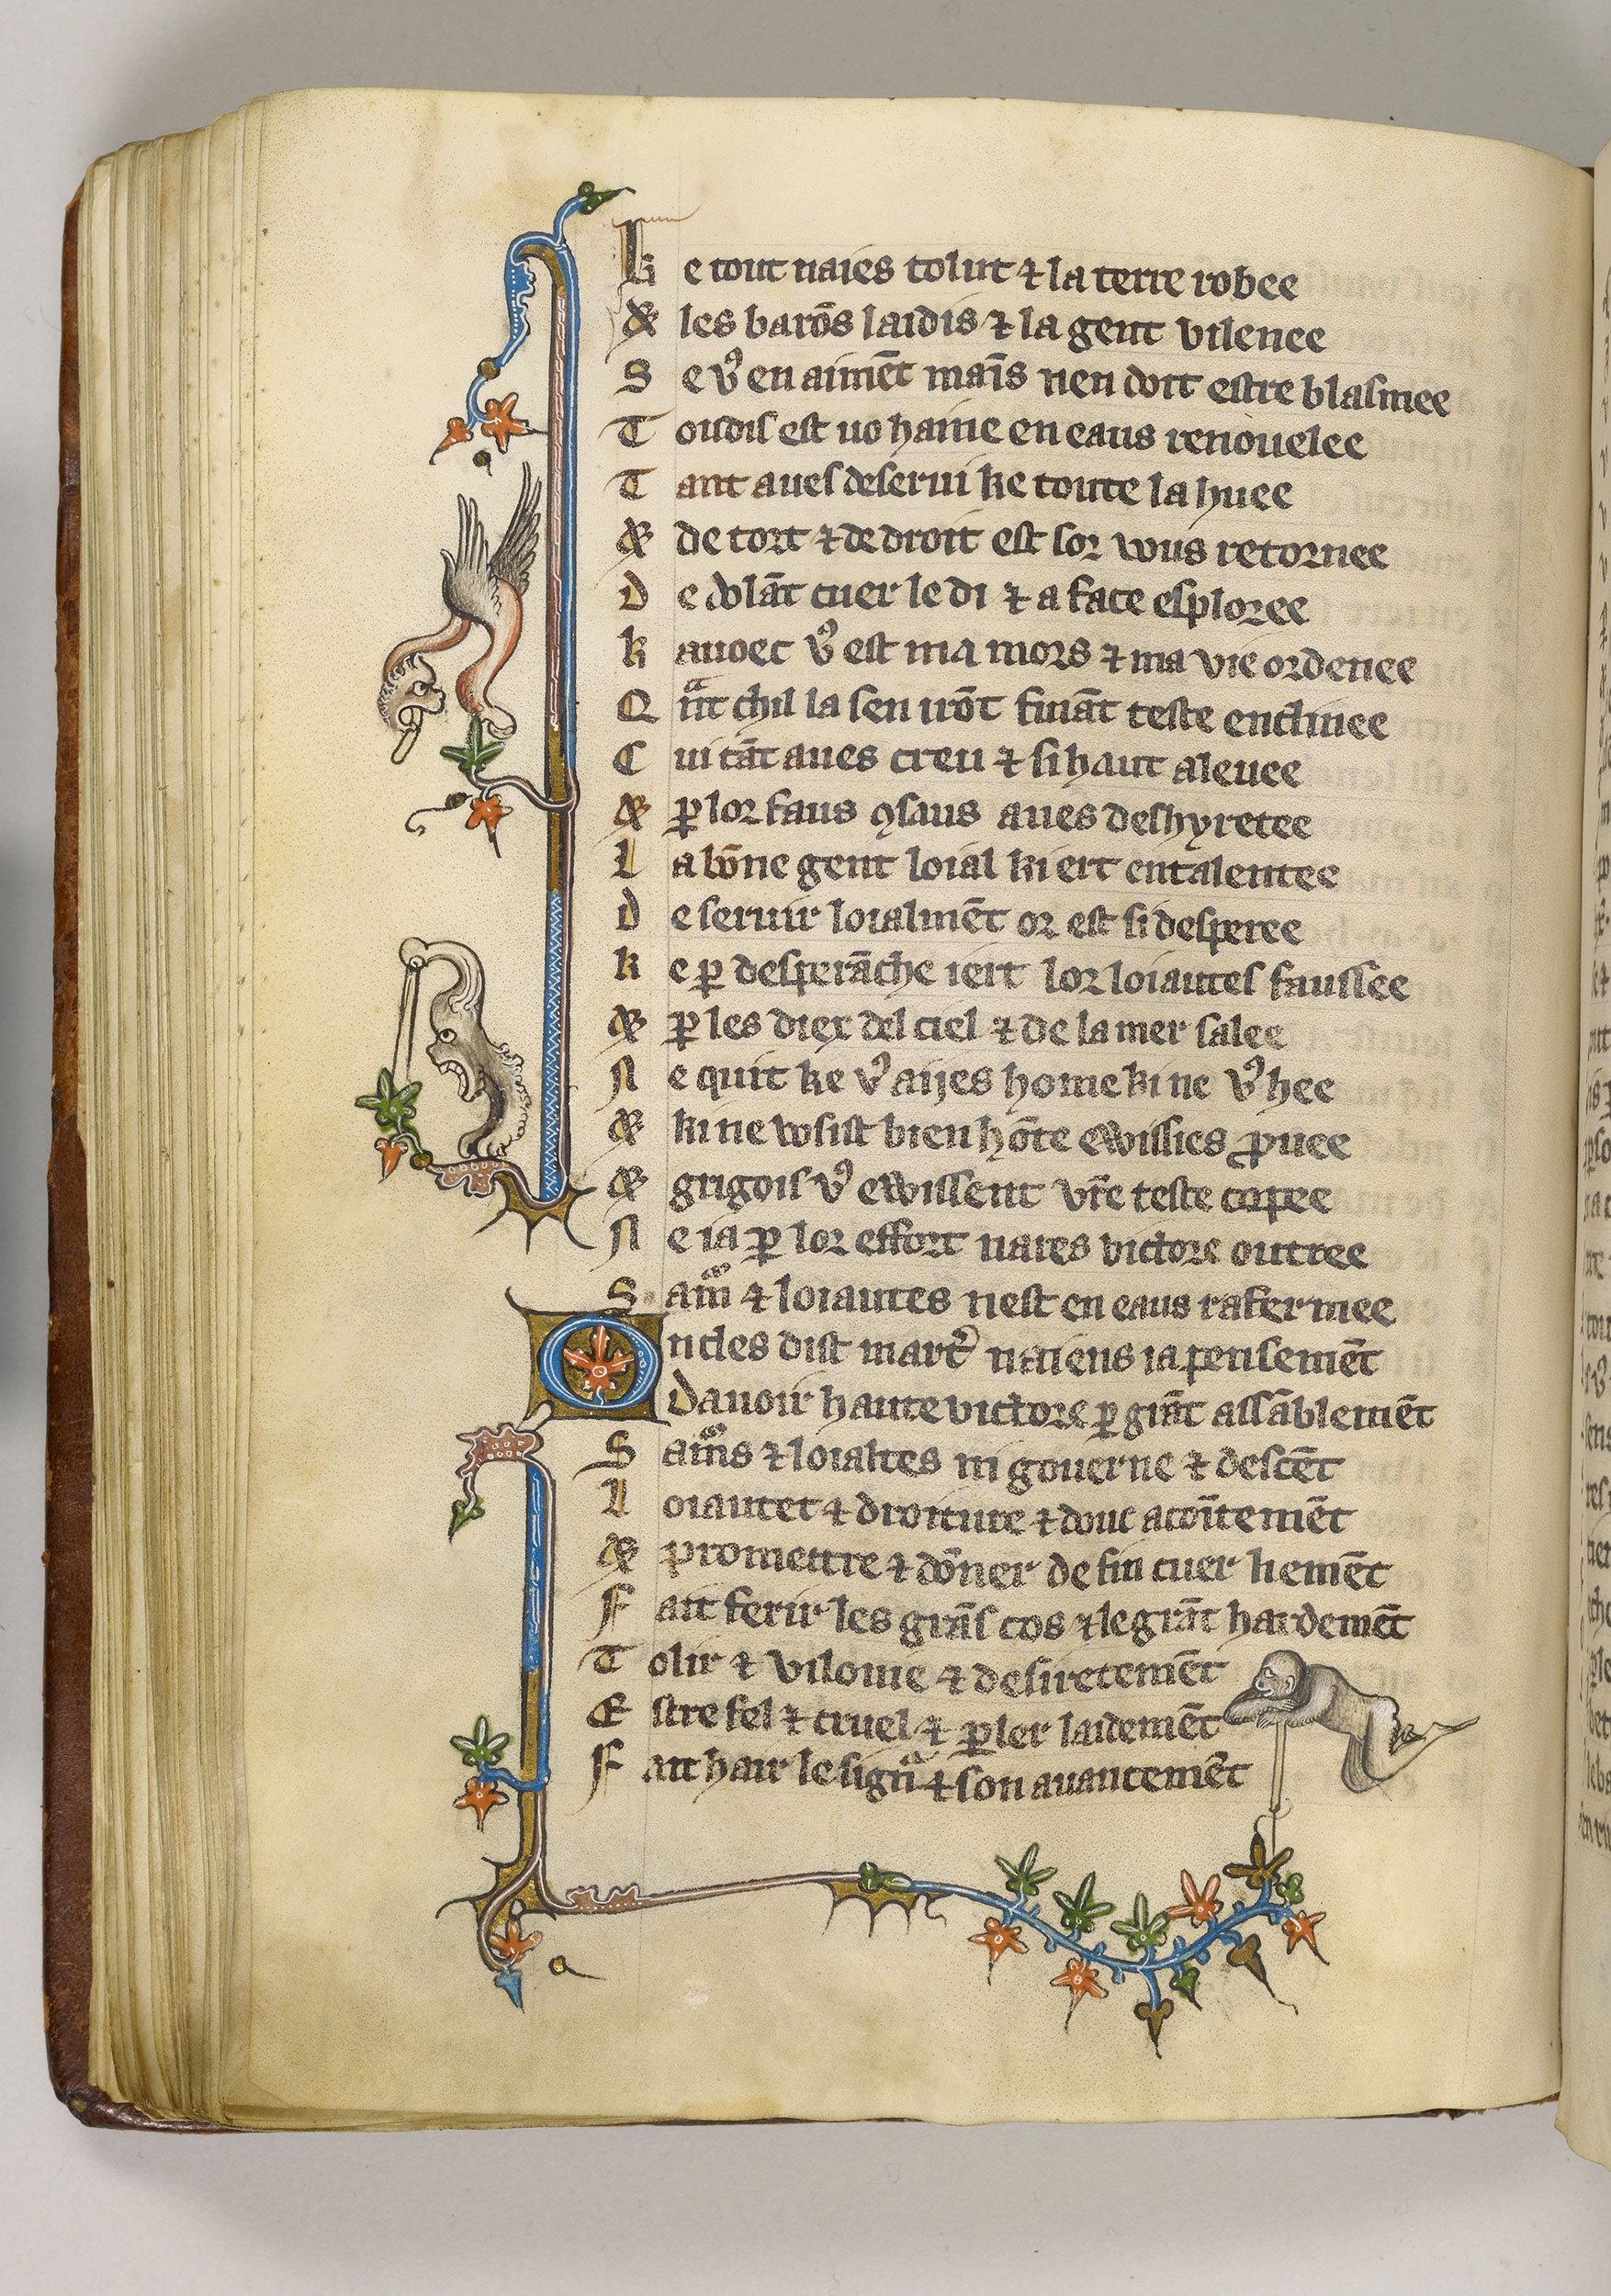 Ke tout naies tolut ⁊ la terre robee
Et les barōs laidis ⁊ la gent vilenee
Se vꝰ en aimēt mains nen doit estre blasmee
Toudis est uo haine en eaus renouelee
Tant aues deserui ke toute la huee
Et de tort ⁊ de droit est sor vous retornee
De dolāt cuer le di ⁊ a face esploree
Kauoec vꝰ est ma mors ⁊ ma vie ordenee
Qᵃnt chil la sen uōt fuiāt teste enclinee
Cui tāt aues creu ⁊ si haut aleuee
Et ꝑ lor faus ꝯsaus aues deshyretee
La bōne gent loial ki ert entalentee
De seruir loialmēt or est si desperee
Ke ꝑ desperāche iert lor loiautes faussee
Et ꝑ les diex del ciel ⁊ de la mer salee
Ne quit ke vꝰ aijes home ki ne vꝰ hee
Et ki ne vosist bien hōte ewissies ꝓuee
Et grigois vꝰ ewissent vr̄e teste copee
Ne ia ꝑ lor effort nares victore outree
Samᵒʳ ⁊ loiautes nest en eaus rafermee
Oncles dist mart̉ naiens ia pensemēt
Dauoir haute victore ꝑ grāt assāblemēt
Samᵒʳs ⁊ loialtes ni gouerne ⁊ descēt
Loiautet ⁊ droiture ⁊ douc acoītemēt
Et promettre ⁊ dōner de fin cuer liemēt
Fait ferir les grās cos ⁊ le grāt hardemēt
Tolir ⁊ vilonie ⁊ desiretemēt
Estre fel ⁊ cruel ⁊ ꝑler laidemēt
Fait hair le signᵃ ⁊ son auantemēt